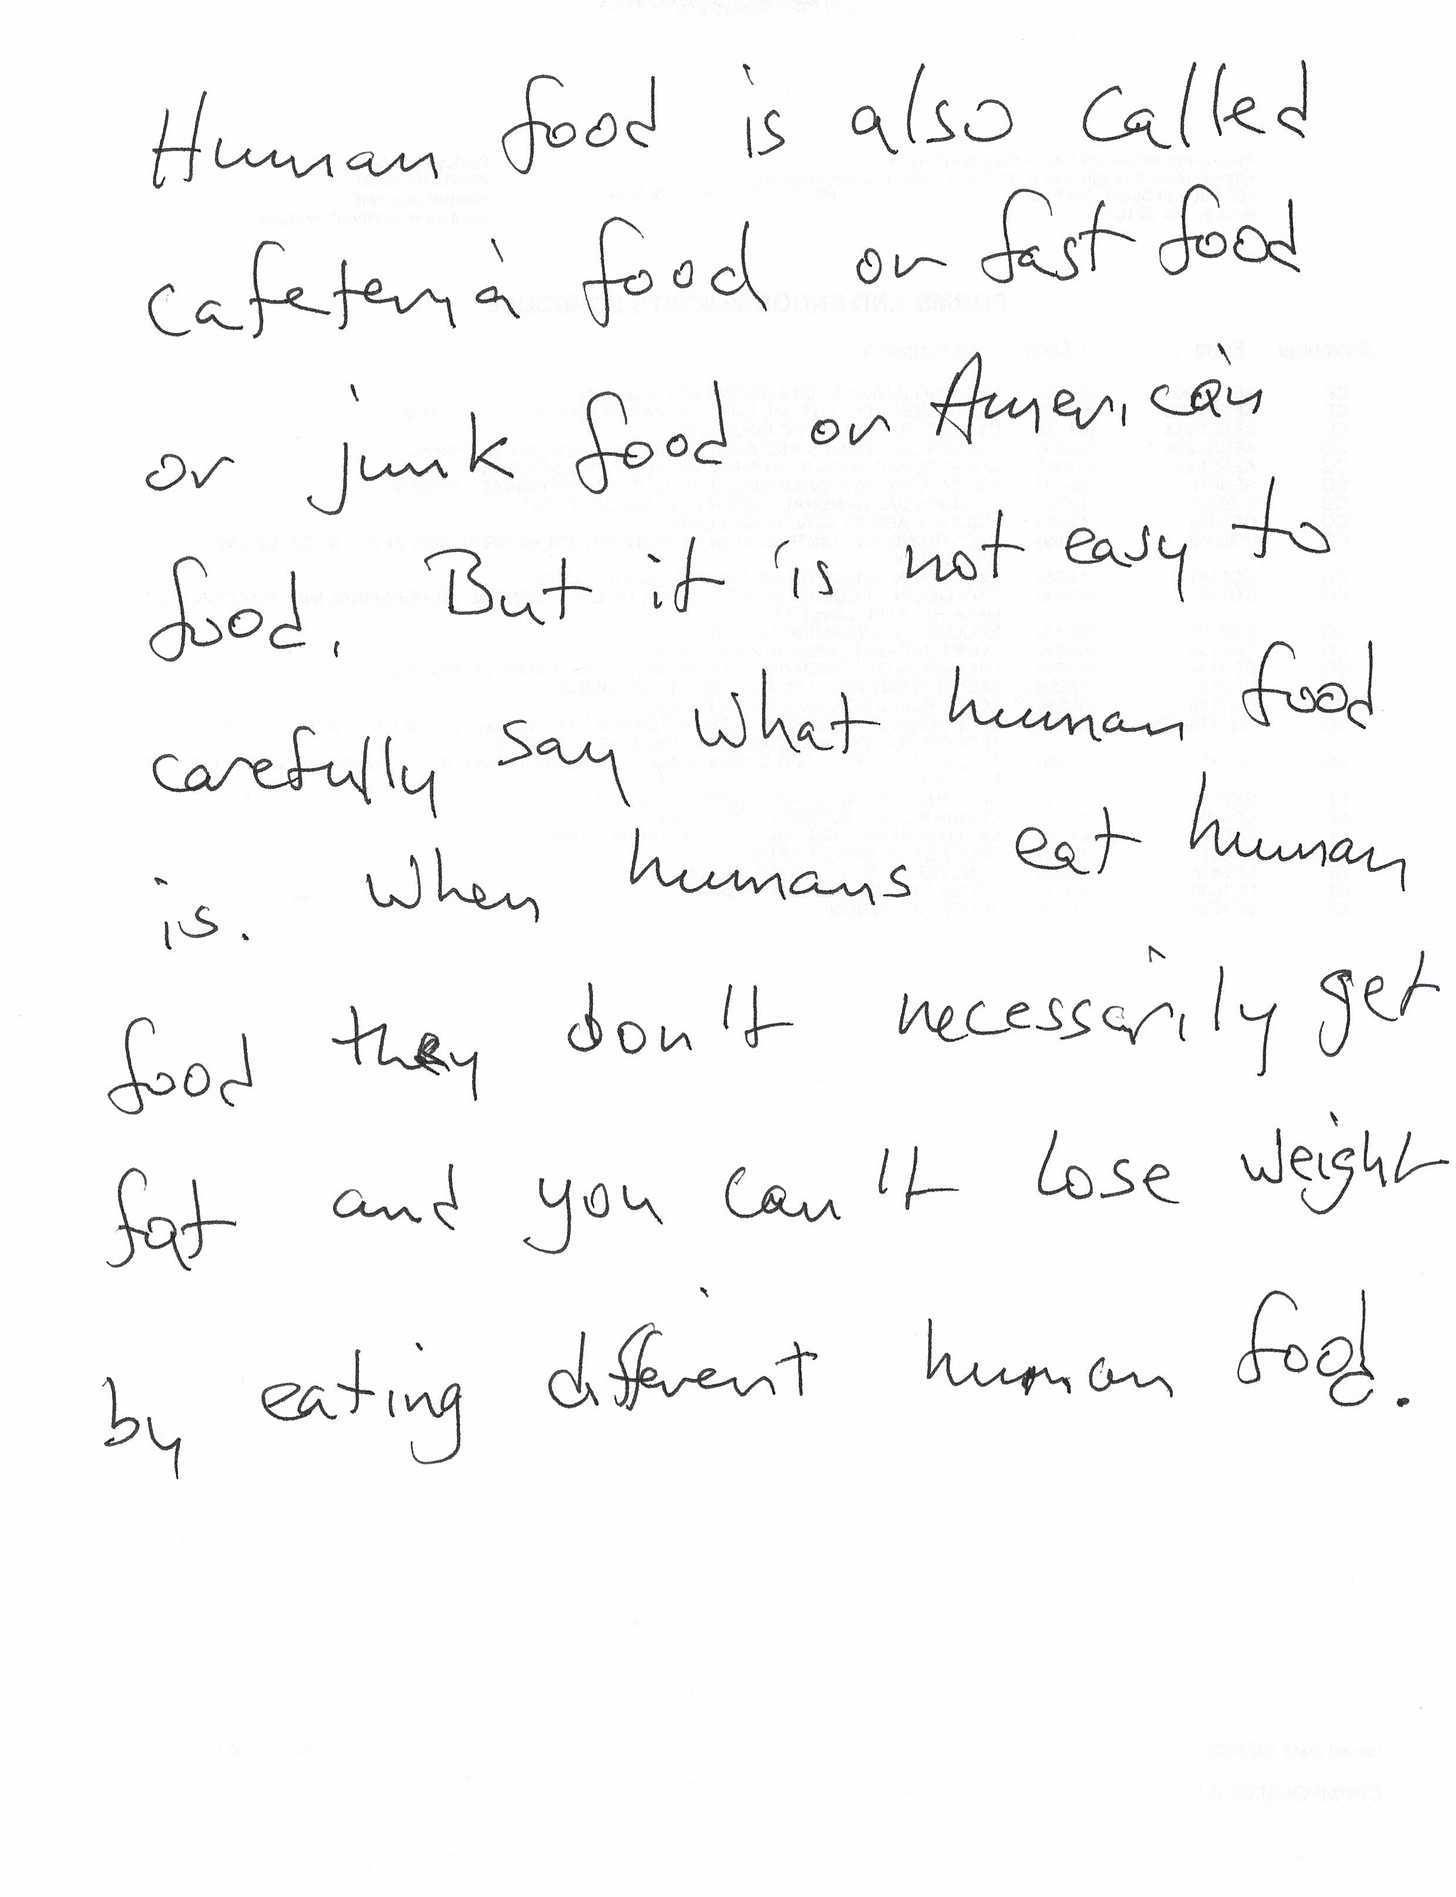 Human food is also called
cafeteria food or fast food
or junk food or American
food. But it is not easy to
carefully say what human food
is. When humans eat human
food they don't necessarily get
fat and you can't lose weight
by eating different human food.